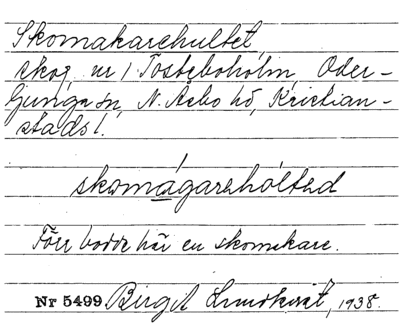 Skomakarehultet,
skog, nr 1 Tostaboholm, Oder-
ljunga sn, N. Åsbo hd, Kristian-
stads l.
skomágarehòlted
Förr bodde här en skomakare.
Nr 5499 Birgit Lundkvist, 1938.